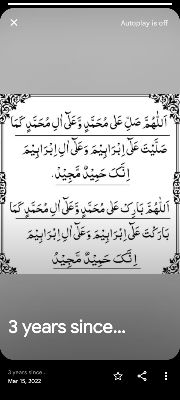 Autoplay is off
اَللّٰهُمَّ صَلِّ عَلٰى مُحَمَّدٍ وَّعَلٰٓى اٰلِ مُحَمَّدٍ كَمَا
صَلَّيْتَ عَلٰٓى اِبْرَاهِيْمَ وَعَلٰٓى اٰلِ اِبْرَاهِيْمَ
اِنَّكَ حَمِيْدٌ مَّجِيْدٌ.
اَللّٰهُمَّ بَارِكْ عَلٰى مُحَمَّدٍ وَّعَلٰٓى اٰلِ مُحَمَّدٍ كَمَا
بَارَكْتَ عَلٰٓى اِبْرَاهِيْمَ وَعَلٰٓى اٰلِ اِبْرَاهِيْمَ
اِنَّكَ حَمِيْدٌ مَّجِيْدٌ
3 years since...
3 years since...
Mar 15, 2022